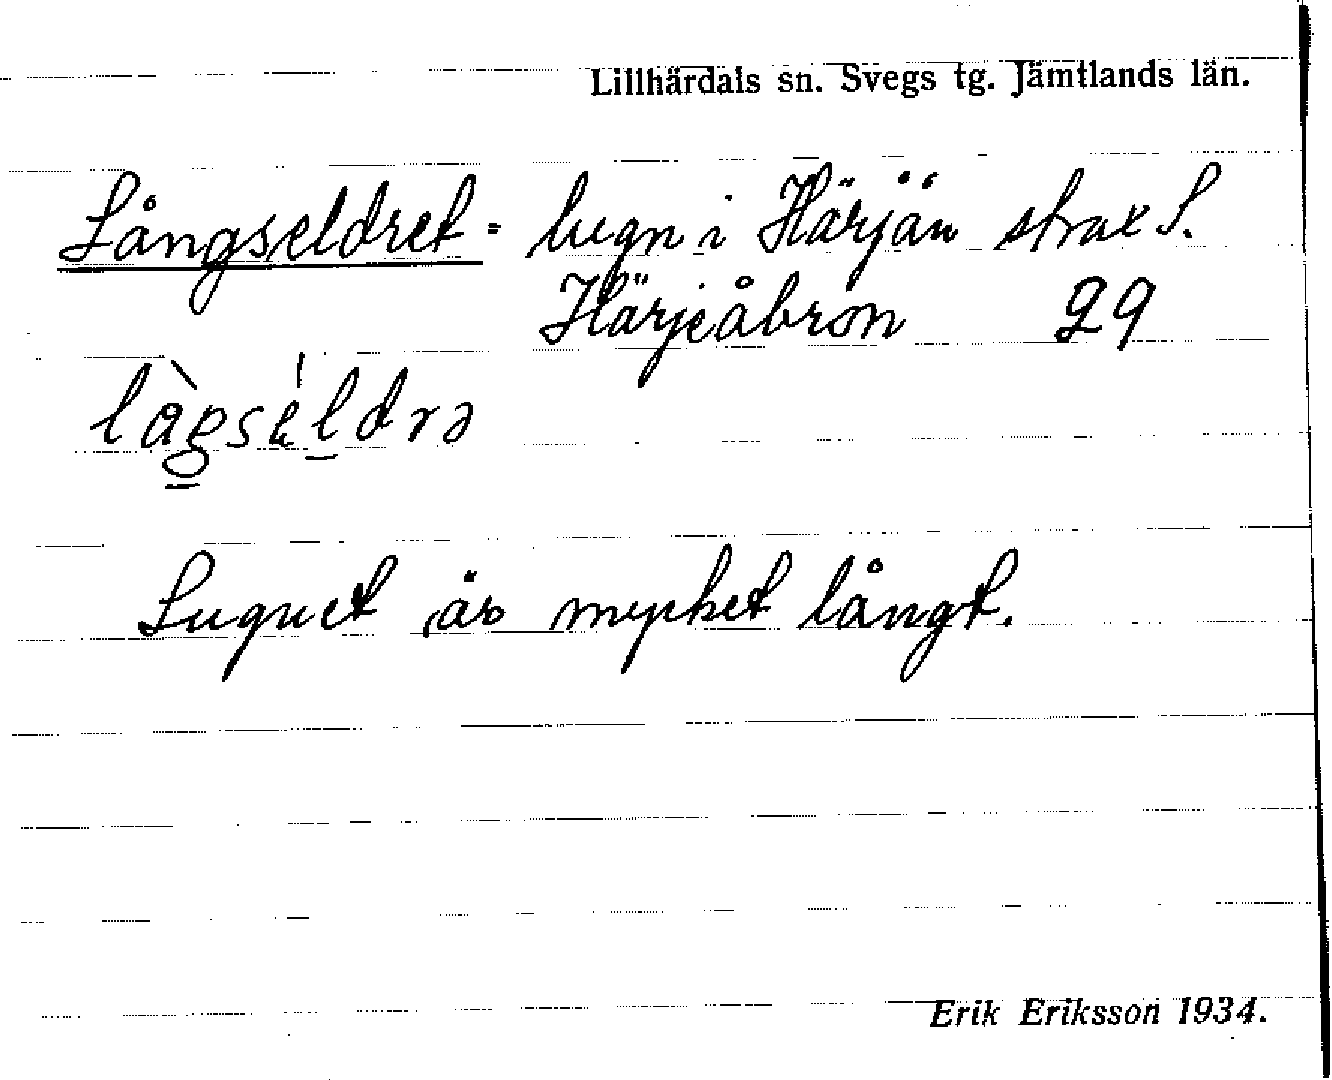 Lillhärdals sn. Svegs tg. Jämtlands län.
Långseldret = lugn i Härjån strax S.
Härjeåbron 29
là̊gse̍ldrə
Lugnet är mycket långt.
Erik Eriksson 1934.